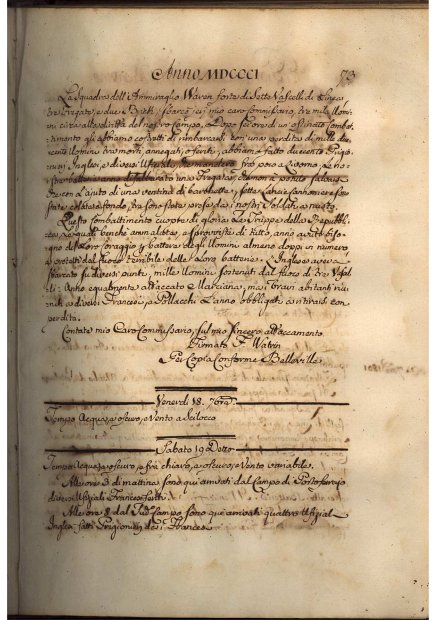 Anno MDCCCI
73
La Squadra dell'Ammiraglio Waren forte di Sette Vascelli di Linea
tre Fregate, e due Brich, sbarcò jeri mio caro Commissario, tre mila Uomi-
ni circa alla diritta del nostro Campo, e Dopo sei ore di un ostinato Comba-
timento gli abbiamo costretti di rimbarcarsi con una perdita di mille du-
cento Uomini tra morti, annegati, o feriti, abbiam fatto ducento Prigio-
nieri Inglesi, e diversi Uffiziali,
una Fregata,
con l'ajuto di una ventina di barchette, sette Canoniere
state
i nostri Soldati a nuoto
Questo Combattimento cuopre di gloria le Truppe della Repubbli-
ca, le quali benchè ammalate, e sprovviste di tutto, anno avuto biso-
gno del loro coraggio per battere degli Uomini almeno doppi in numero
e protetti dal fuoco terribile delle Loro batterie. Gl'Inglesi avevan
sbarcato su diversi punti, mille Uomini sostenuti dal fuoco di tre Vascel-
li: Anno egualmente attaccato e Marciana, ma i bravi abitanti riu-
niti a diversi Francesi, e Pollacchi l'anno obbligati a ritirarsi con
perdita.
Contate mio Caro Commissario, sul mio sincero attaccamento
Firmato F. Watrin
Per Copia Conforme Belleville
Venerdì 18. 7bre
Tempo Acqua, e oscuro, e Vento a Scilocco
Sabato 19 Detto
Tempo Acqua, e oscuro, e frà chiaro, e oscuro, e Vento variabile.
Alle ore 3 di mattino sono quì arrivati dal Campo di Portoferrajo
diversi Uffiziali Francesi
Alle ore 8 dal Sud. Campo sono quì arrivati quattro Uffiziali
Inglesi fatti Prigionieri dei Francesi